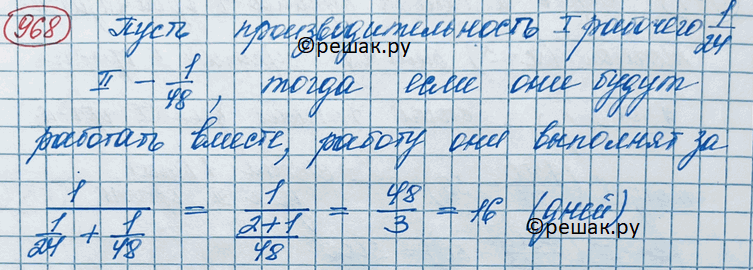 968 Пусть производительность I рабочего 1/24
©решак.ру
II – 1/48, тогда если они будут
работать вместе, работу они выполнят за
1/(1/24 + 1/48) = 1/((2+1)/48) = 48/3 = 16 (дней)
©решак.ру